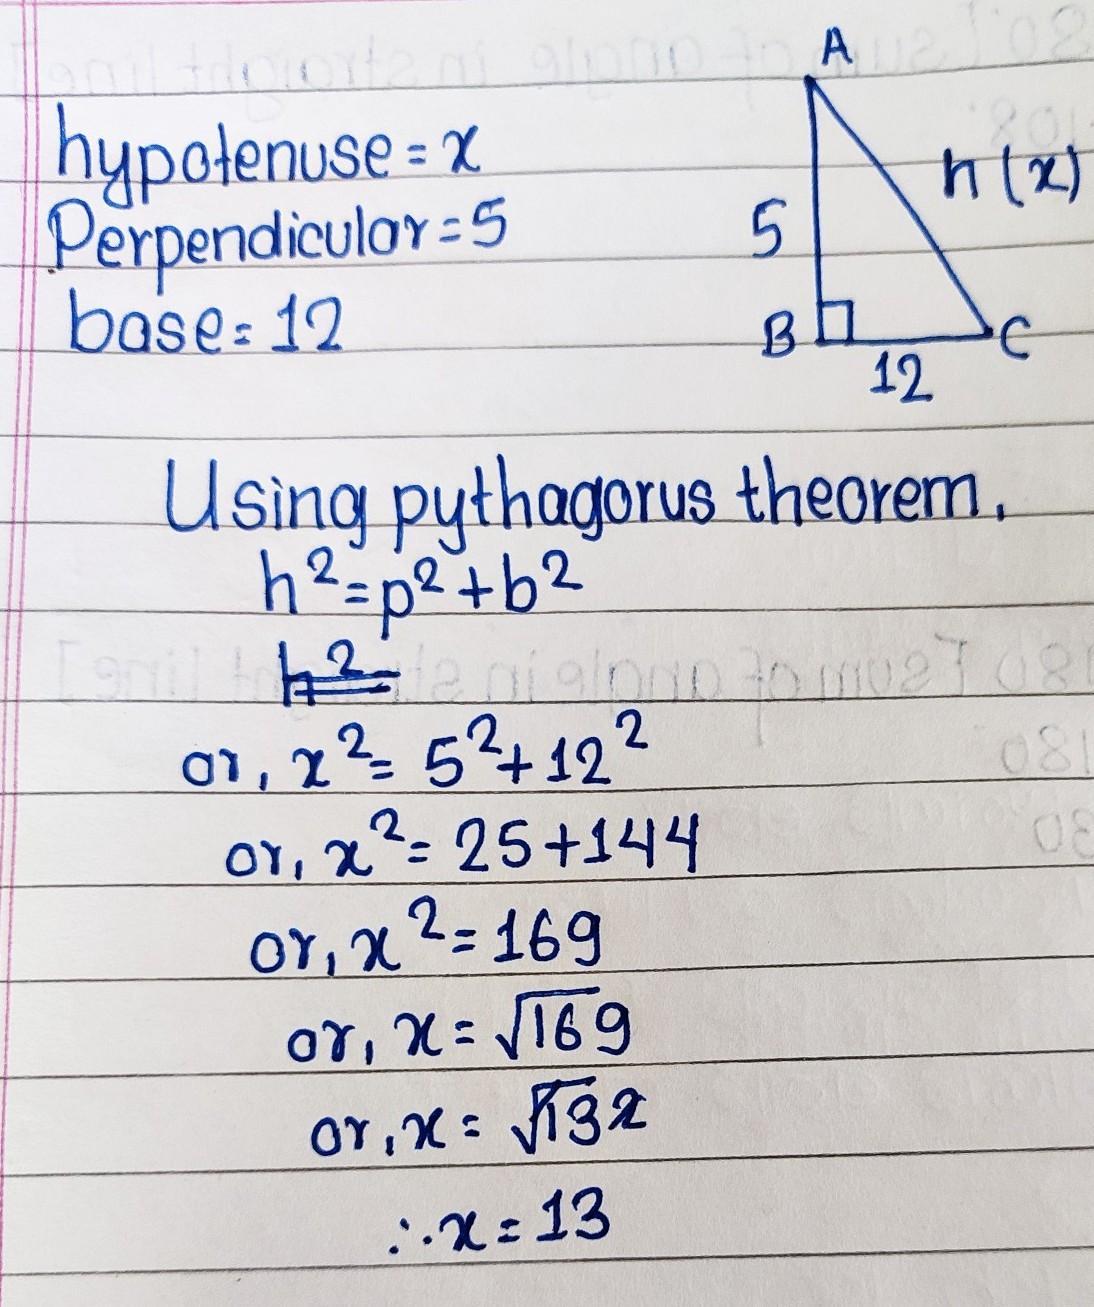 hypotenuse = x
Perpendicular = 5
base = 12
A
5
h (x)
B
C
12
Using pythagorus theorem,
h² = p² + b²
h² =
or, x² = 5² + 12²
or, x² = 25 + 144
or, x² = 169
or, x = √169
or, x = √13²
∴ x = 13